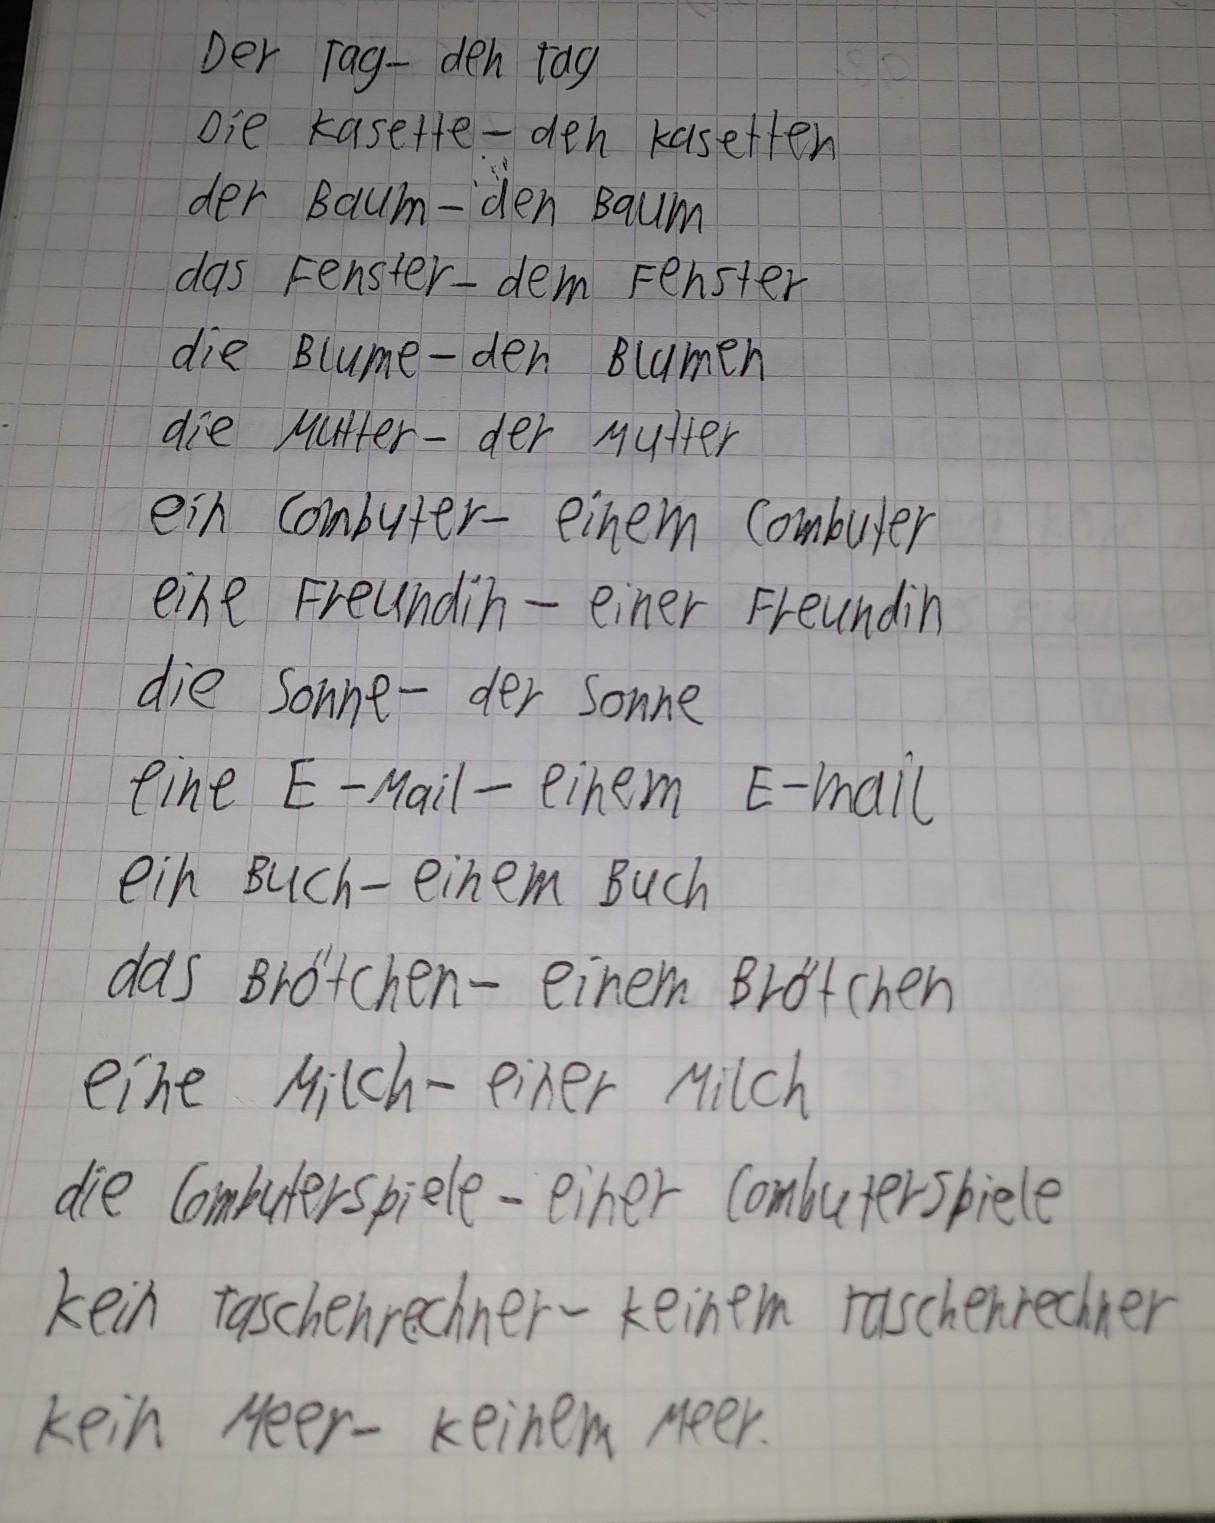 Der Tag - den Tag
Die Kasette - den Kasetten
der Baum - den Baum
das Fenster - dem Fenster
die Blume - den Blumen
die Mutter - der Mutter
ein Combuter - einem Combuter
eine Freundin - einer Freundin
die Sonne - der Sonne
eine E-Mail - einem E-mail
ein Buch - einem Buch
das Brötchen - einem Brötchen
eine Milch - einer Milch
die Combuterspiele - einer Combuterspiele
kein Taschenrechner - keinem Taschenrechner
kein Meer - keinem Meer.